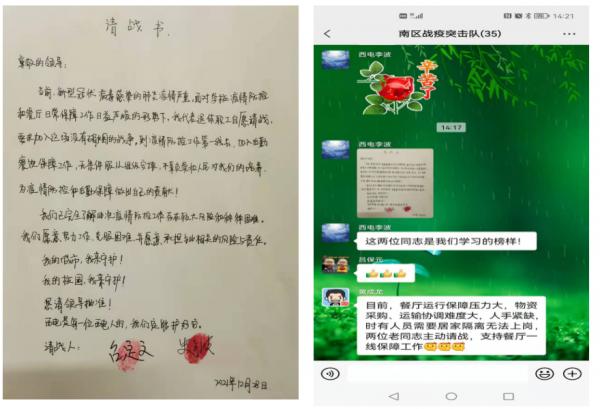 请战书
尊敬的领导:
当前,新型冠状病毒感染的肺炎疫情严重,面对学校疫情防控
和餐厅日常保障工作日益严峻的形势下,我代表退休职工自愿请战,
要求加入这场没有硝烟的战争。到疫情防控工作第一线去,加入后勤
餐饮保障工作,无条件服从组织安排,不负党和人民对我们的培养
为疫情防控和后勤保障做出自己的贡献!
我们已完全了解此次疫情防控工作存在较大风险和种种困难。
我们愿意努力工作,克服困难,并愿意承担由此相关的风险与责任。
我的城市,我来守护!
我的校园,我来守护!
恳请领导批准!
西电是每一位西电人的,我们应
请战人:
2021年12月28日
14:21
南区战疫突击队(35)
西电李波
辛苦了
14:17
西电李波
西电李波
这两位同志是我们学习的榜样!
吕保元
目前,餐厅运行保障压力大,物资
采购、运输协调难度大,人手紧缺,
时有人员需要居家隔离无法上岗,
两位老同志主动请战,支持餐厅一
线保障工作